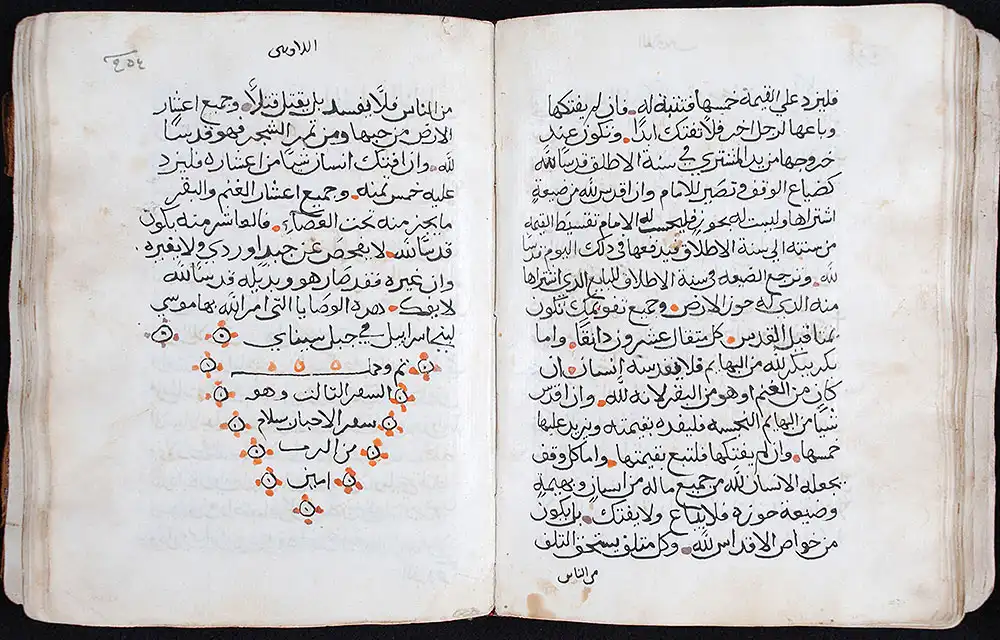 فليزد علي القيمة خمسها فتثبته له. فان لم يفتكها
وباعها لرجل اخر فلا تفتك ابدًا. وتكون عند
خروجها من يد المشتري في سنة الاطلاق قدسًا لله
كضياع الوقف فتصير للامام وان اقدس لله من ضيعة
اشتراها وليست له بحوز فليحسب له الامام تقسيط القيمه
من سنته الي سنة الاطلاق فيدفعها في ذلك اليوم قدسًا
لله. وترجع الضيعه في سنة الاطلاق للبايع الذي اشتراها
منه الذي له حوز الارض. وجميع تقويمك تكون
بمثاقيل القدس. كل مثقال عشرون دانقًا. واما
بكر يبكر لله من البهايم فلا يقدسه انسان. ان
كان من الغنم او هو من البقر لانه لله. وان اقدس
شيًا من البهايم النجسه فليفده بقيمته ويزيد عليها
خمسها. وان لم يفتكها فلتبع بقيمتها. واما كل وقف
يجعله الانسان لله من جميع ماله من انسان وبهيمةٍ
وضيعة حوزه فلا يباع ولا يفتك. بل يكون
من خواص الاقداس لله. وكل متلف يستحق التلف
من الناس
اللاوي
من الناس فلا يفسد بل يقتل قتلًا. وجميع اعشار
الارض من حبها ومن ثمر الشجر فهو قدسًا
لله. وان افتك انسان شيًا من اعشاره فليزد
عليه خمس ثمنه. وجميع اعشار الغنم والبقر
ما يجز منه تحت العصاء. فالعاشر منه يكون
قدسًا لله. لا يفحص عن جيد او ردي ولا يغيره.
وان غيره فقد صار هو وبديله قدسًا لله
لا يفك. هذه الوصايا التي امر الله بها موسي
لبني اسراييل في جبل سيناي
تم وكمل
السفر التالت وهو
سفر الاحبار بسلام
من الرب
امين